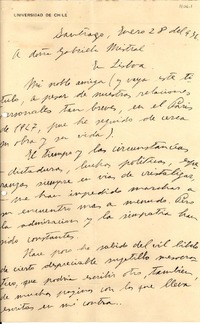 UNIVERSIDAD DE CHILE
Santiago, Enero 28 del 936
A doña Gabriela Mistral
En Lisboa
Mi noble amiga (y vaya este tí
tulo, a pesar de nuestras relaciones
personales tan breves, en el París
de 1927, pues he seguido de cerca
su obra y su vida).
El tiempo y las circunstancias
dictadura, luchas políticas,
ranzas siempre en vías de cristalizar,
me han impedido marchar a
su encuentro más a menudo. Pero
la admiración y la simpatía han
sido constantes.
Hace poco ha salido del vil libelo
de cierto despreciable sujetillo
que podría escribir otro también
de muchas páginas con lo que lleva
escritos en mi contra.